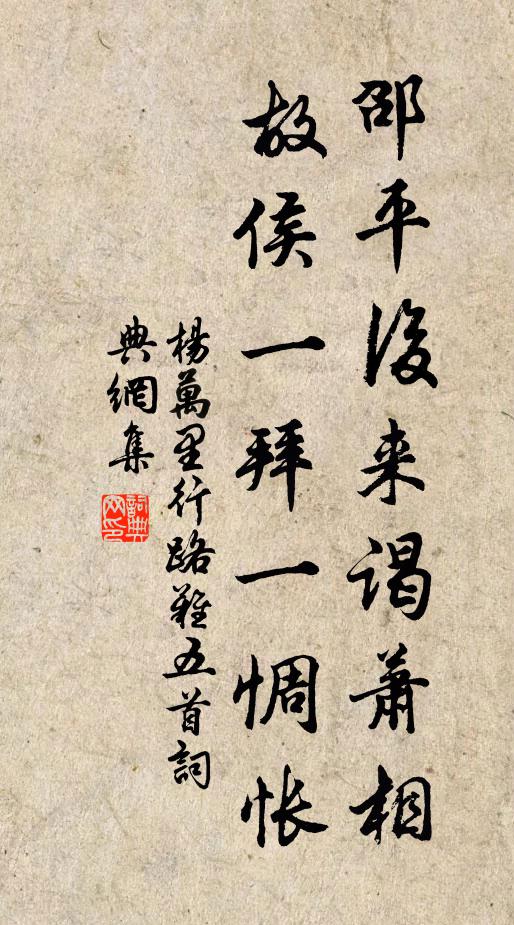 邵平後来谒蕭相
故侯一拜一惆怅
楊萬里行路難五首詞
典網集
詞典網印